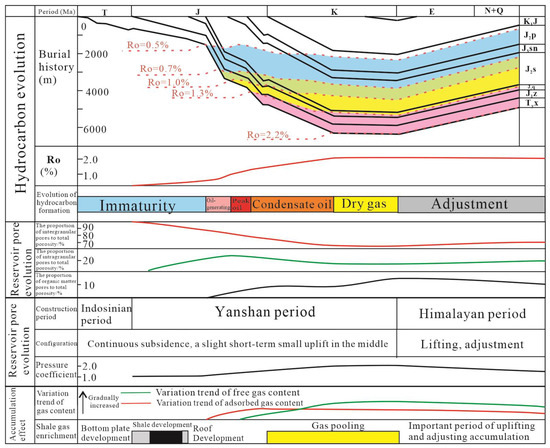 Period (Ma)
T
J
K
E
N+Q
Hydrocarbon evolution
Burial
history
(m)
2000
4000
6000
Ro=0.5%
Ro=0.7%
Ro=1.0%
Ro=1.3%
Ro=2.2%
K,J
J3p
J2sn
J2s
J1z
T3x
Ro
(%)
2.0
1.0
Evolution of
hydrocarbon
formation
Immaturity
Oil-
generating
Peak
oil
Condensate oil
Dry gas
Adjustment
Reservoir pore
evolution
The proportion
of intergranular
pores to total
porosity/%
90
80
70
The proportion
of intragranular
pores to total
porosity/%
20
The proportion
of organic matter
pores to total
porosity/%
10
Reservoir pore
evolution
Construction
period
Indosinian
period
Yanshan period
Himalayan period
Configuration
Continuous subsidence, a slight short-term small uplift in the middle
Lifting, adjustment
Pressure
coefficient
2.0
1.0
Accumulation
effect
Variation
trend of
gas content
Gradually
increased
Variation trend of free gas content
Variation trend of adsorbed gas content
Shale gas
enrichment
Bottom plate
development
Shale development
Roof
Development
Gas pooling
Important period of uplifting
and adjusting accumulation